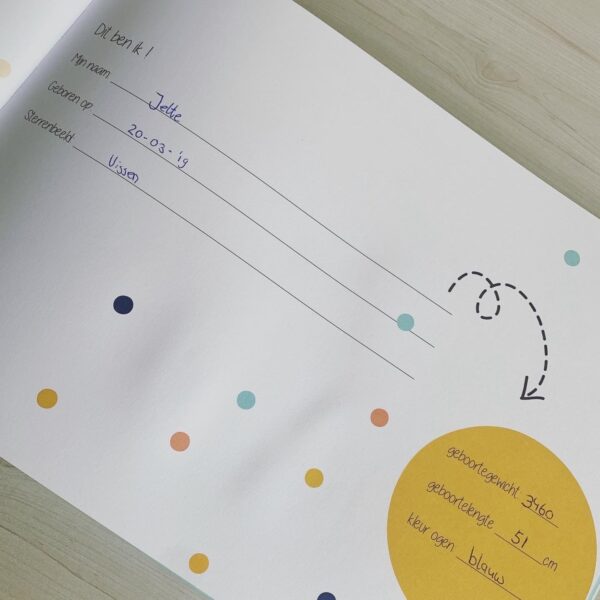 Dit ben ik !
Mijn naam Jelte
Geboren op 20-03-'19
Sterrenbeeld Vissen
geboortegewicht 3460
geboortelengte 51 cm
kleur ogen blauw